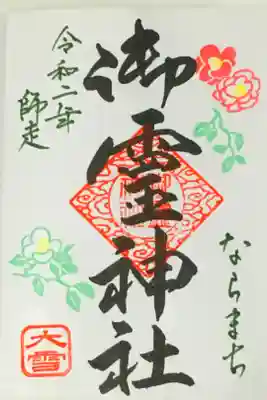 令和二年
師走
御霊神社
ならまち
大雪